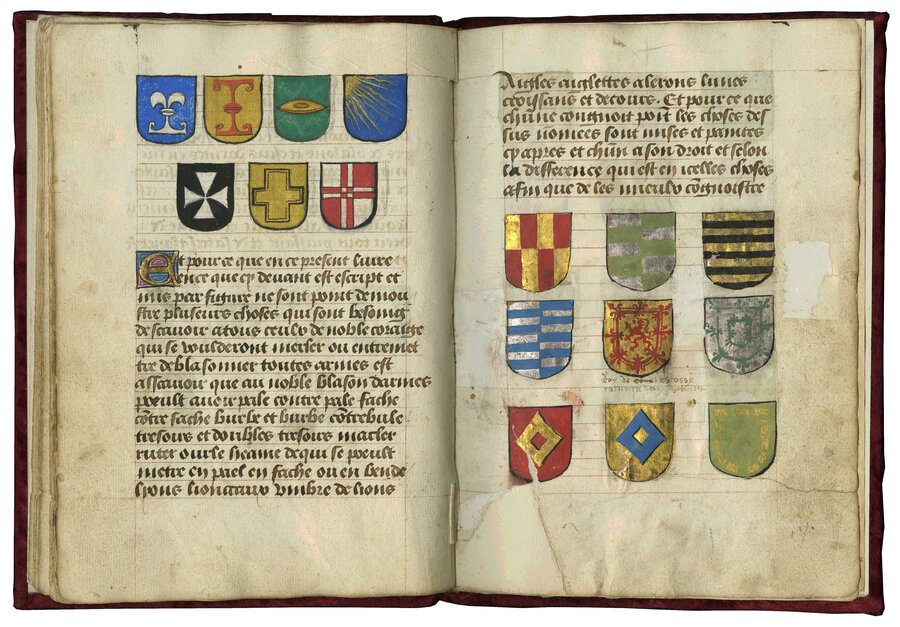 Et pour ce que en ce present livre
en ce que cy devant est escript et
mis par figure ne sont point demou
stre plusieurs choses qui sont besoing
de scavoir a tous ceulx de noble
qui se vouldront mesler ou entremet
tre de blasonner toutes armes est
assavoir que au noble blason darmes
poeult avoir pale contre pale fache
cōtre fache burle et burbe cōtrebule
tresours et doubles tresours macler
ruter ou le de qui se poeult
metre en pael en fache ou en bende
lyons lionceaux umbre de lions
Aigles aiglettes alerons lunes
croissans et decours. Et pour ce que
chūn congnoit point les choses des
sus nomees sont mises et paintes
cy apres et chūn a son droit et selon
la difference qui est en icelles choses
afin que de les mieulx cōgnoistre